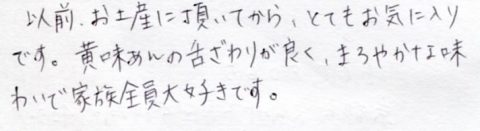 以前、お土産に頂いてから、とてもお気に入り
です。黄味あんの舌ざわりが良く、まろやかな味
わいで家族全員大好きです。